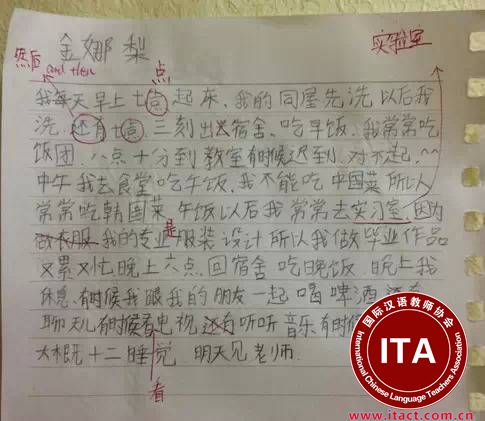 金娜梨
实验室
然后
and then
点
我每天早上七点起床、我的同屋先洗以后我
洗、还有七点三刻出去宿舍、吃早饭、我常常吃
饭团、八点十分到教室有时候迟到、对不起、^^
中午我去食堂吃午饭、我不能吃中国菜所以
常常吃韩国菜午饭以后我常常去实习室、因为
做衣服我的专业是服装设计所以我做毕业作品
又累又忙晚上六点回宿舍吃晚饭 晚上我
休息、有时候我跟我的朋友一起喝啤酒还有
聊天儿有时候看电视还有听听音乐有时候
大概十二睡觉 明天见老师.
看
国际汉语教师协会
ITA
International Chinese Language Teachers Association
www.itact.com.cn